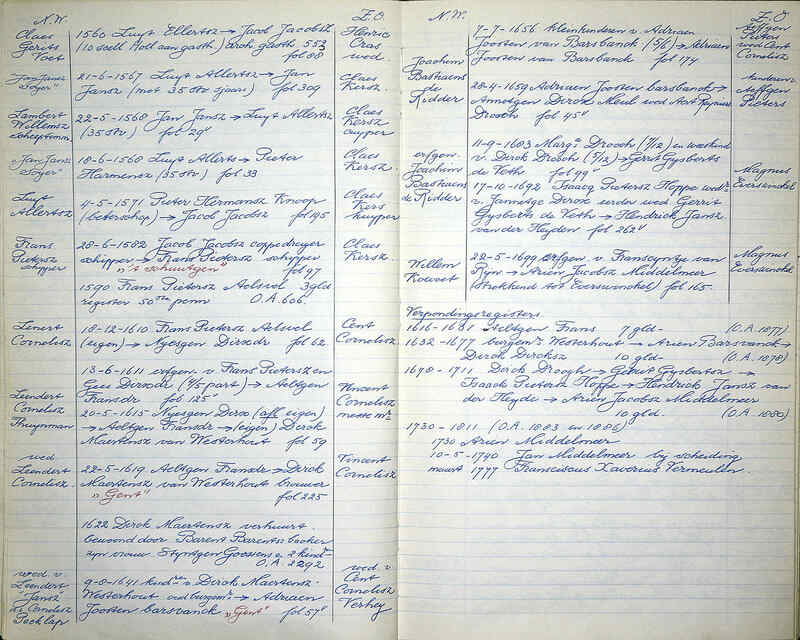 N.W.
Z.O.
Claes
Gerits
Voet
1560 Luyt Ellertsz → Jacob Jacobsz
(10 scell Holl aan gasth.) archi gasth. 553
fol 88
Henric
Oras
wed.
Jan Jansz
"Soyer"
21-6-1567 Luyt Allertsz → Jan
Jansz (met 35 stv sjaars) fol 309
Claes
Kersz.
Lambert
Willemsz
scheystoom.
22-5-1568 Jan Jansz → Luyt Allertsz
(35 stv.) fol 29v
Claes
Kersz
cuyper
Jan Jansz
"Soyer"
18-6-1568 Luyt Allerts → Pieter
Harmensz (35 stv) fol 33
Claes
Kersz.
Luyt
Allertsz
4-5-1571 Pieter Hermansz Knoop
(beterschap) → Jacob Jacobsz fol 195
Claes
Kers
kuyper
Frans
Pietersz
schipper
28-6-1582 Jacob Jacobsz coppedreyer
schipper → Frans Pietersz schipper
"'t schuutgen" fol 97
Claes
Kersz.
1590 Frans Pietersz Aelswel 3 gld
register 50ste penn O.A. 606.
Lenert
Cornelisz
18-12-1610 Frans Pietersz Aelswel
(eigen) → Nyesgen Dirxdr fol 62
Cent
Cornelisz
13-6-1611 erfgen. v Frans Pietersz en
Gees Dirxdr (4/5 part) → Aeltgen
Fransdr fol 125v
Leendert
Cornelisz
Thuynman
20-5-1615 Nyesgen Dirxdr (aff eigen)
→ Aeltgen Fransdr → (eigen) Dirck
Maertensz van Westerhout fol 59
Vincent
Cornelisz
metse mr.
wed
Leendert
Cornelisz
22-5-1619 Aeltgen Fransdr → Dirck
Maertensz van Westerhout brouwer
"Gent" fol 225
Vincent
Cornelisz
1622 Dirck Maertensz verhuurt.
bewoond door Barent Barentsz backer
zyn vrouw Styntgen Goessens e. 2 kindrn
O.A. 2292
wed. v.
Leendert
"Jansz"
Cornelisz
Pecklap
9-8-1641 kindren v Dirck Maertensz.
Westerhout oud burgemr. → Adriaen
Joosten barsvanck "Gent" fol 57v
wed. v
Cent
Cornelisz
Verhey
N.W.
Z.O.
7-7-1656 kleinkinderen v. Adriaen
Joosten van Barsbanck (5/6) → Adriaen
Joosten van Barsbanck fol 174
Aeffgen
Pieters
wed Cent
Cornelisz
Joachim
Bastiaens
de
Ridder
28-4-1659 Adriaen Joosten barsbanck →
Annetgen Dircx Meul wed Aert Reyniersz
Drosch fol 45v
kinderen
Aeffgen
Pieters
erfgen.
Joachim
Bastiaens
de Ridder
11-9-1683 Marga Drosch (7/12) en weeskind
v. Dirck Drosch (5/12) → Gerrit Gysberts
de Veth fol 99v
17-10-1692 Isaacq Pietersz Hoppe wedr
v. Jannetge Dircx eerder wed Gerrit
Gysberts de Veth → Hendrick Jansz
van der Heyden fol 262v
Magnus
Everswinckel
Willem
Kouwet
22-5-1699 erfgen v Franscyntje van
Ryn → Arien Jacobsz Middelmeer
(strekkende tot Everswinckel) fol 165.
Magnus
Everswinckel
Verpondingsregisters
1616-1631 Aeltgen Frans 7 gld- (O.A. 1877)
1632-1677 burgemr Westerhout → Arien Barsvanck →
Dirck Dircksz 10 gld- (O.A. 1878)
1678-1711 Dirck Drogh → Gerrit Gysbertsz →
Isaack Pietersz Hoppe → Hendrick Jansz van
der Heyde → Arien Jacobsz Middelmeer
10 gld. (O.A. 1880)
1730-1811 (O.A. 1883 en 1886)
1730 Arien Middelmeer
10-5-1740 Jan Middelmeer by scheiding
maart 1777 Franciscus Xaverius Vermeulen.